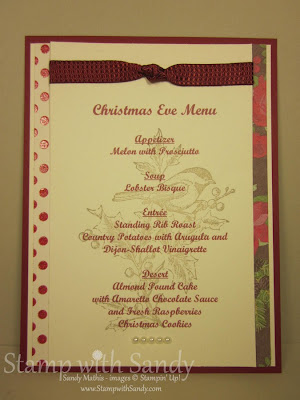 Christmas Eve Menu
Appetizer
Melon with Prosciutto
Soup
Lobster Bisque
Entrée
Standing Rib Roast
Country Potatoes with Arugula and
Dijon-Shallot Vinaigrette
Desert
Almond Pound Cake
with Amaretto Chocolate Sauce
and Fresh Raspberries
Christmas Cookies
Stamp with Sandy
Sandy Mathis - images © Stampin' Up!
www.StampwithSandy.com